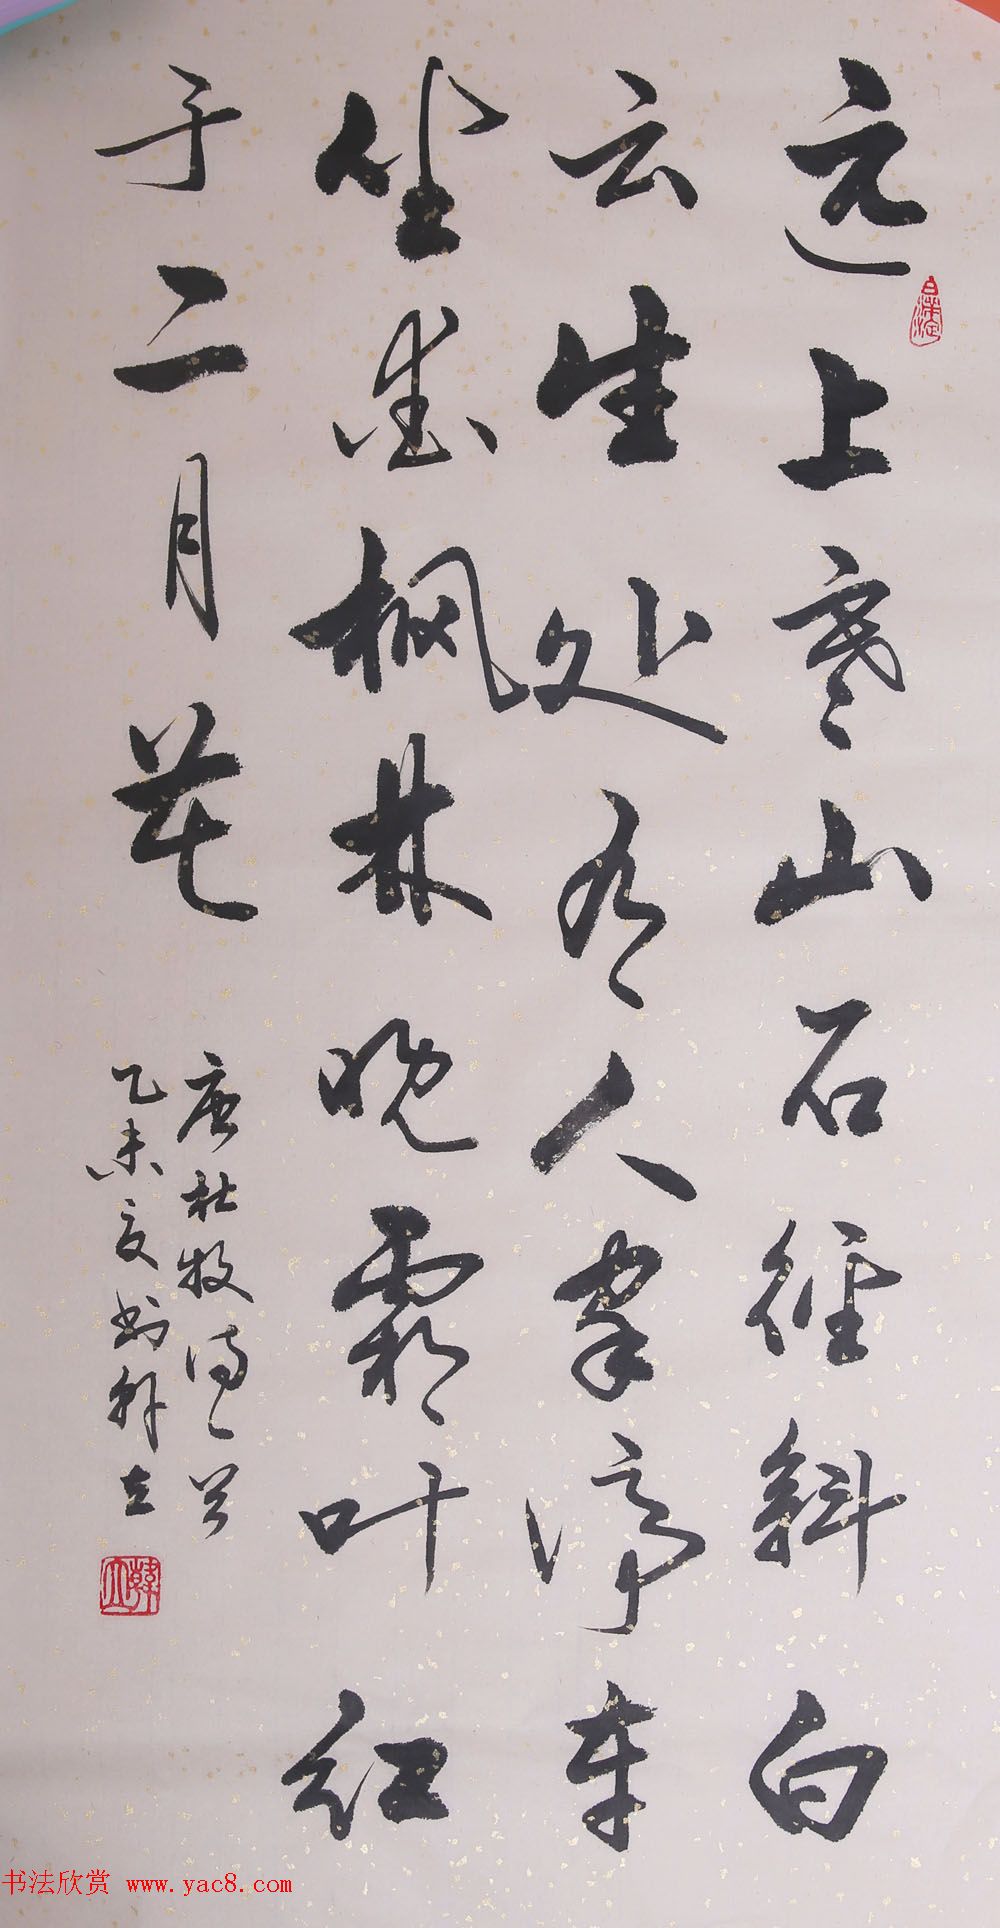 远上寒山石径斜白
云生处有人家停车
坐爱枫林晚霜叶红
于二月花
唐杜牧诗一首
乙未夏书韩立
书法欣赏 www.yac8.com